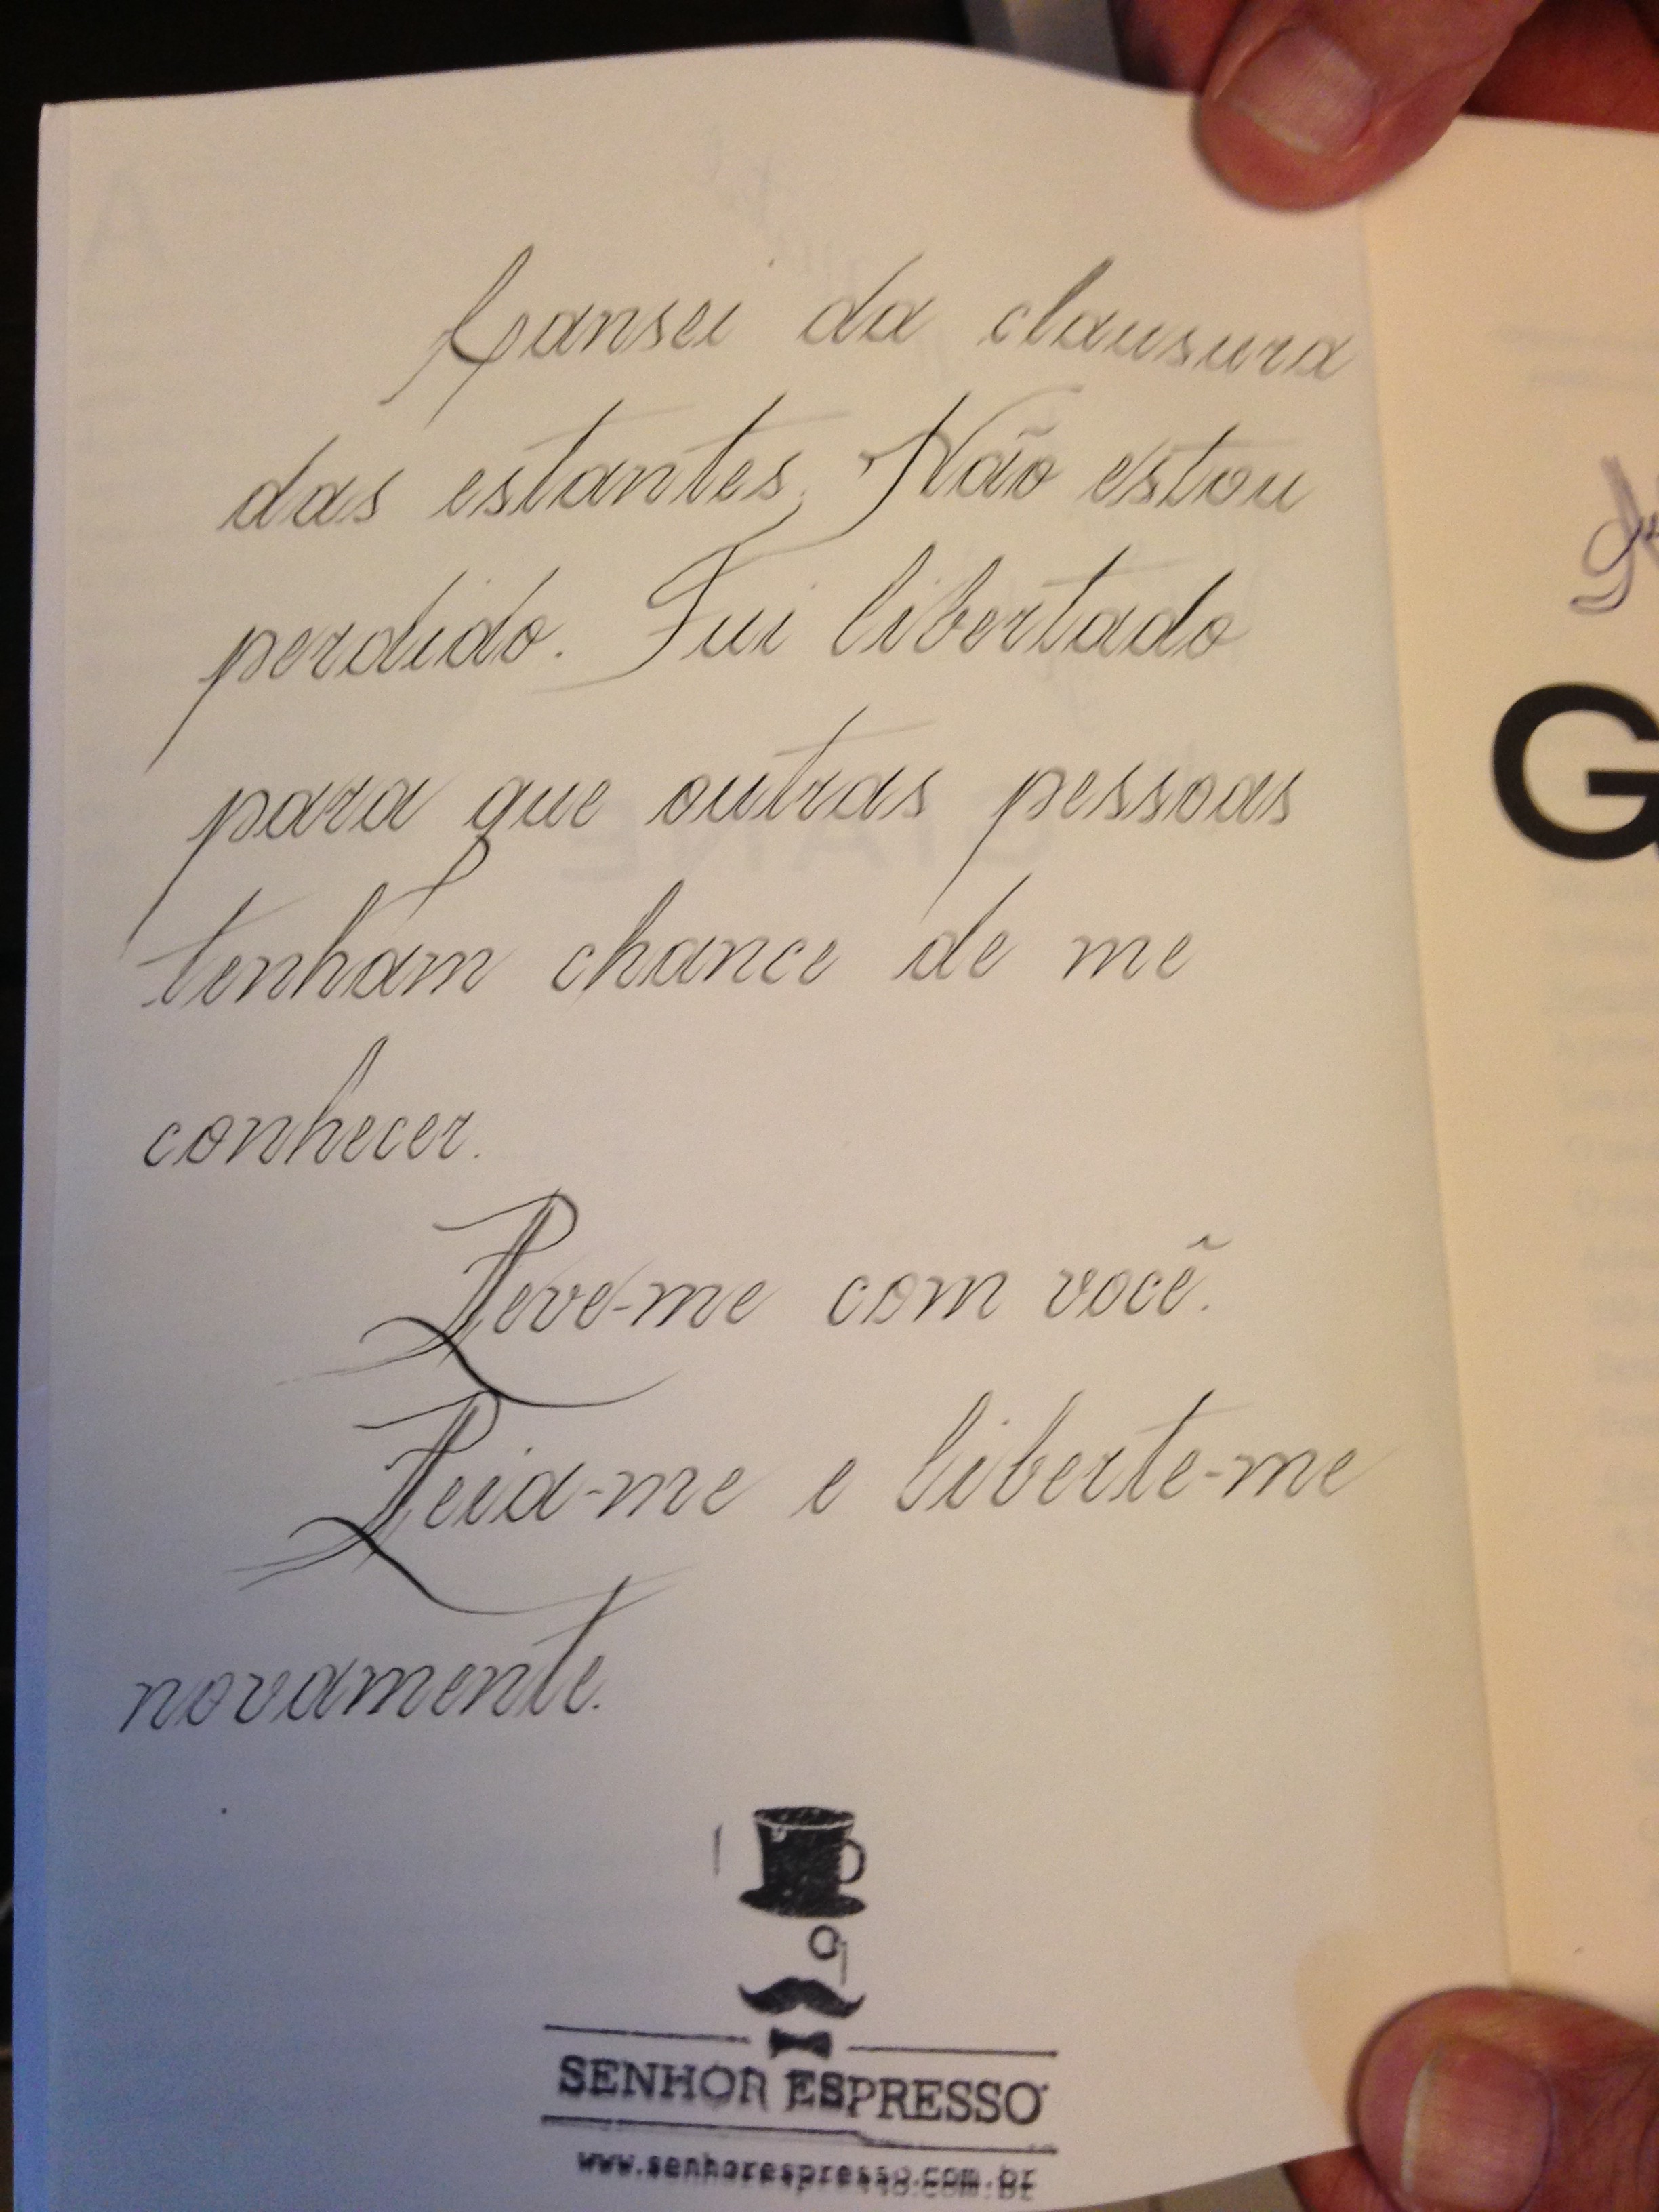 Cansei da clausura
das estantes. Não estou
perdido. Fui libertado
para que outras pessoas
tenham chance de me
conhecer.
Leve-me com você.
Leia-me e liberte-me
novamente.
SENHOR ESPRESSO
www.senhorespresso.com.br
G